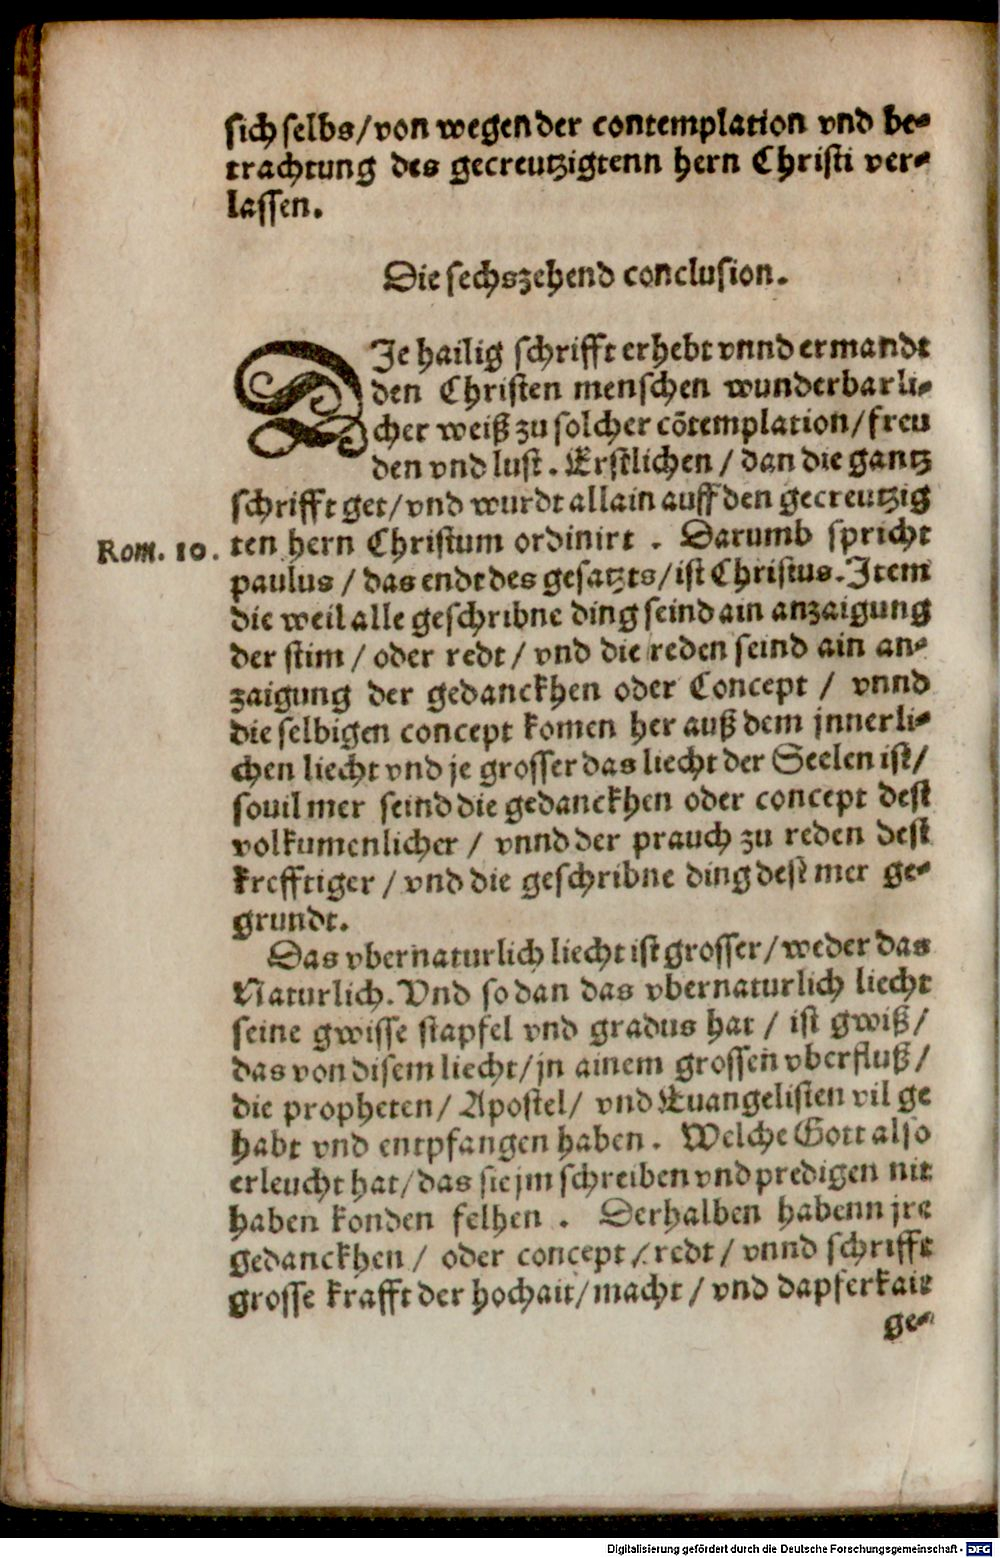 sich selbs/von wegen der contemplation vnd be-
trachtung des gecreutzigtenn hern Christi ver-
lassen.
Die sechszehend conclusion.
DJe hailig schrifft erhebt vnnd ermandt
den Christen menschen wunderbarli-
cher weiß zu solcher cõtemplation/freu
den vnd lust. Erstlichen/dan die gantz
schrifft get/vnd wurdt allain auff den gecreutzig
Rom. 10. ten hern Christum ordinirt. Darumb spricht
paulus/das endt des gesatzts/ist Christus. Jtem
die weil alle geschribne ding seind ain anzaigung
der stim/oder redt/vnd die reden seind ain an-
zaigung der gedanckhen oder Concept/vnnd
die selbigen concept komen her auß dem jnnerli-
chen liecht vnd je grosser das liecht der Seelen ist/
souil mer seind die gedanckhen oder concept dest
volkumenlicher/vnnd der prauch zu reden dest
krefftiger/vnd die geschribne ding dest mer ge-
grundt.
Das vbernaturlich liecht ist grosser/weder das
Naturlich. Vnd so dan das vbernaturlich liecht
seine gwisse stapfel vnd gradus hat/ist gwiß/
das von disem liecht/jn ainem grossen vberfluß/
die propheten/Apostel/vnd Euangelisten vil ge
habt vnd entpfangen haben. Welche Gott also
erleucht hat/das sie jm schreiben vnd predigen nit
haben konden felhen. Derhalben habenn jre
gedanckhen/oder concept/redt/vnnd schrifft
grosse krafft der hochait/macht/vnd dapferkait
ge-
Digitalisierung gefördert durch die Deutsche Forschungsgemeinschaft - DFG